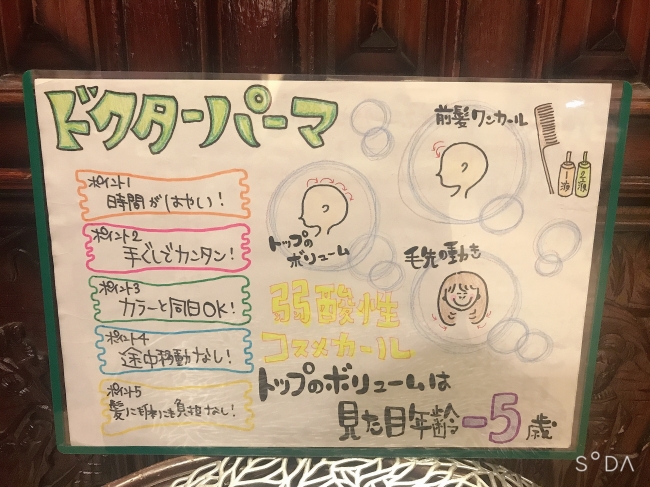 ドクターパーマ
ポイント1
時間がはやい!
ポイント2
手ぐしでカンタン!
ポイント3
カラーと同日OK!
ポイント4
途中移動なし!
ポイント5
髪にも体にも負担なし!
前髪ワンカール
1液
2液
トップの
ボリューム
毛先の動き
弱酸性
コスメカール
トップのボリュームは
見た目年齢-5歳
SODA